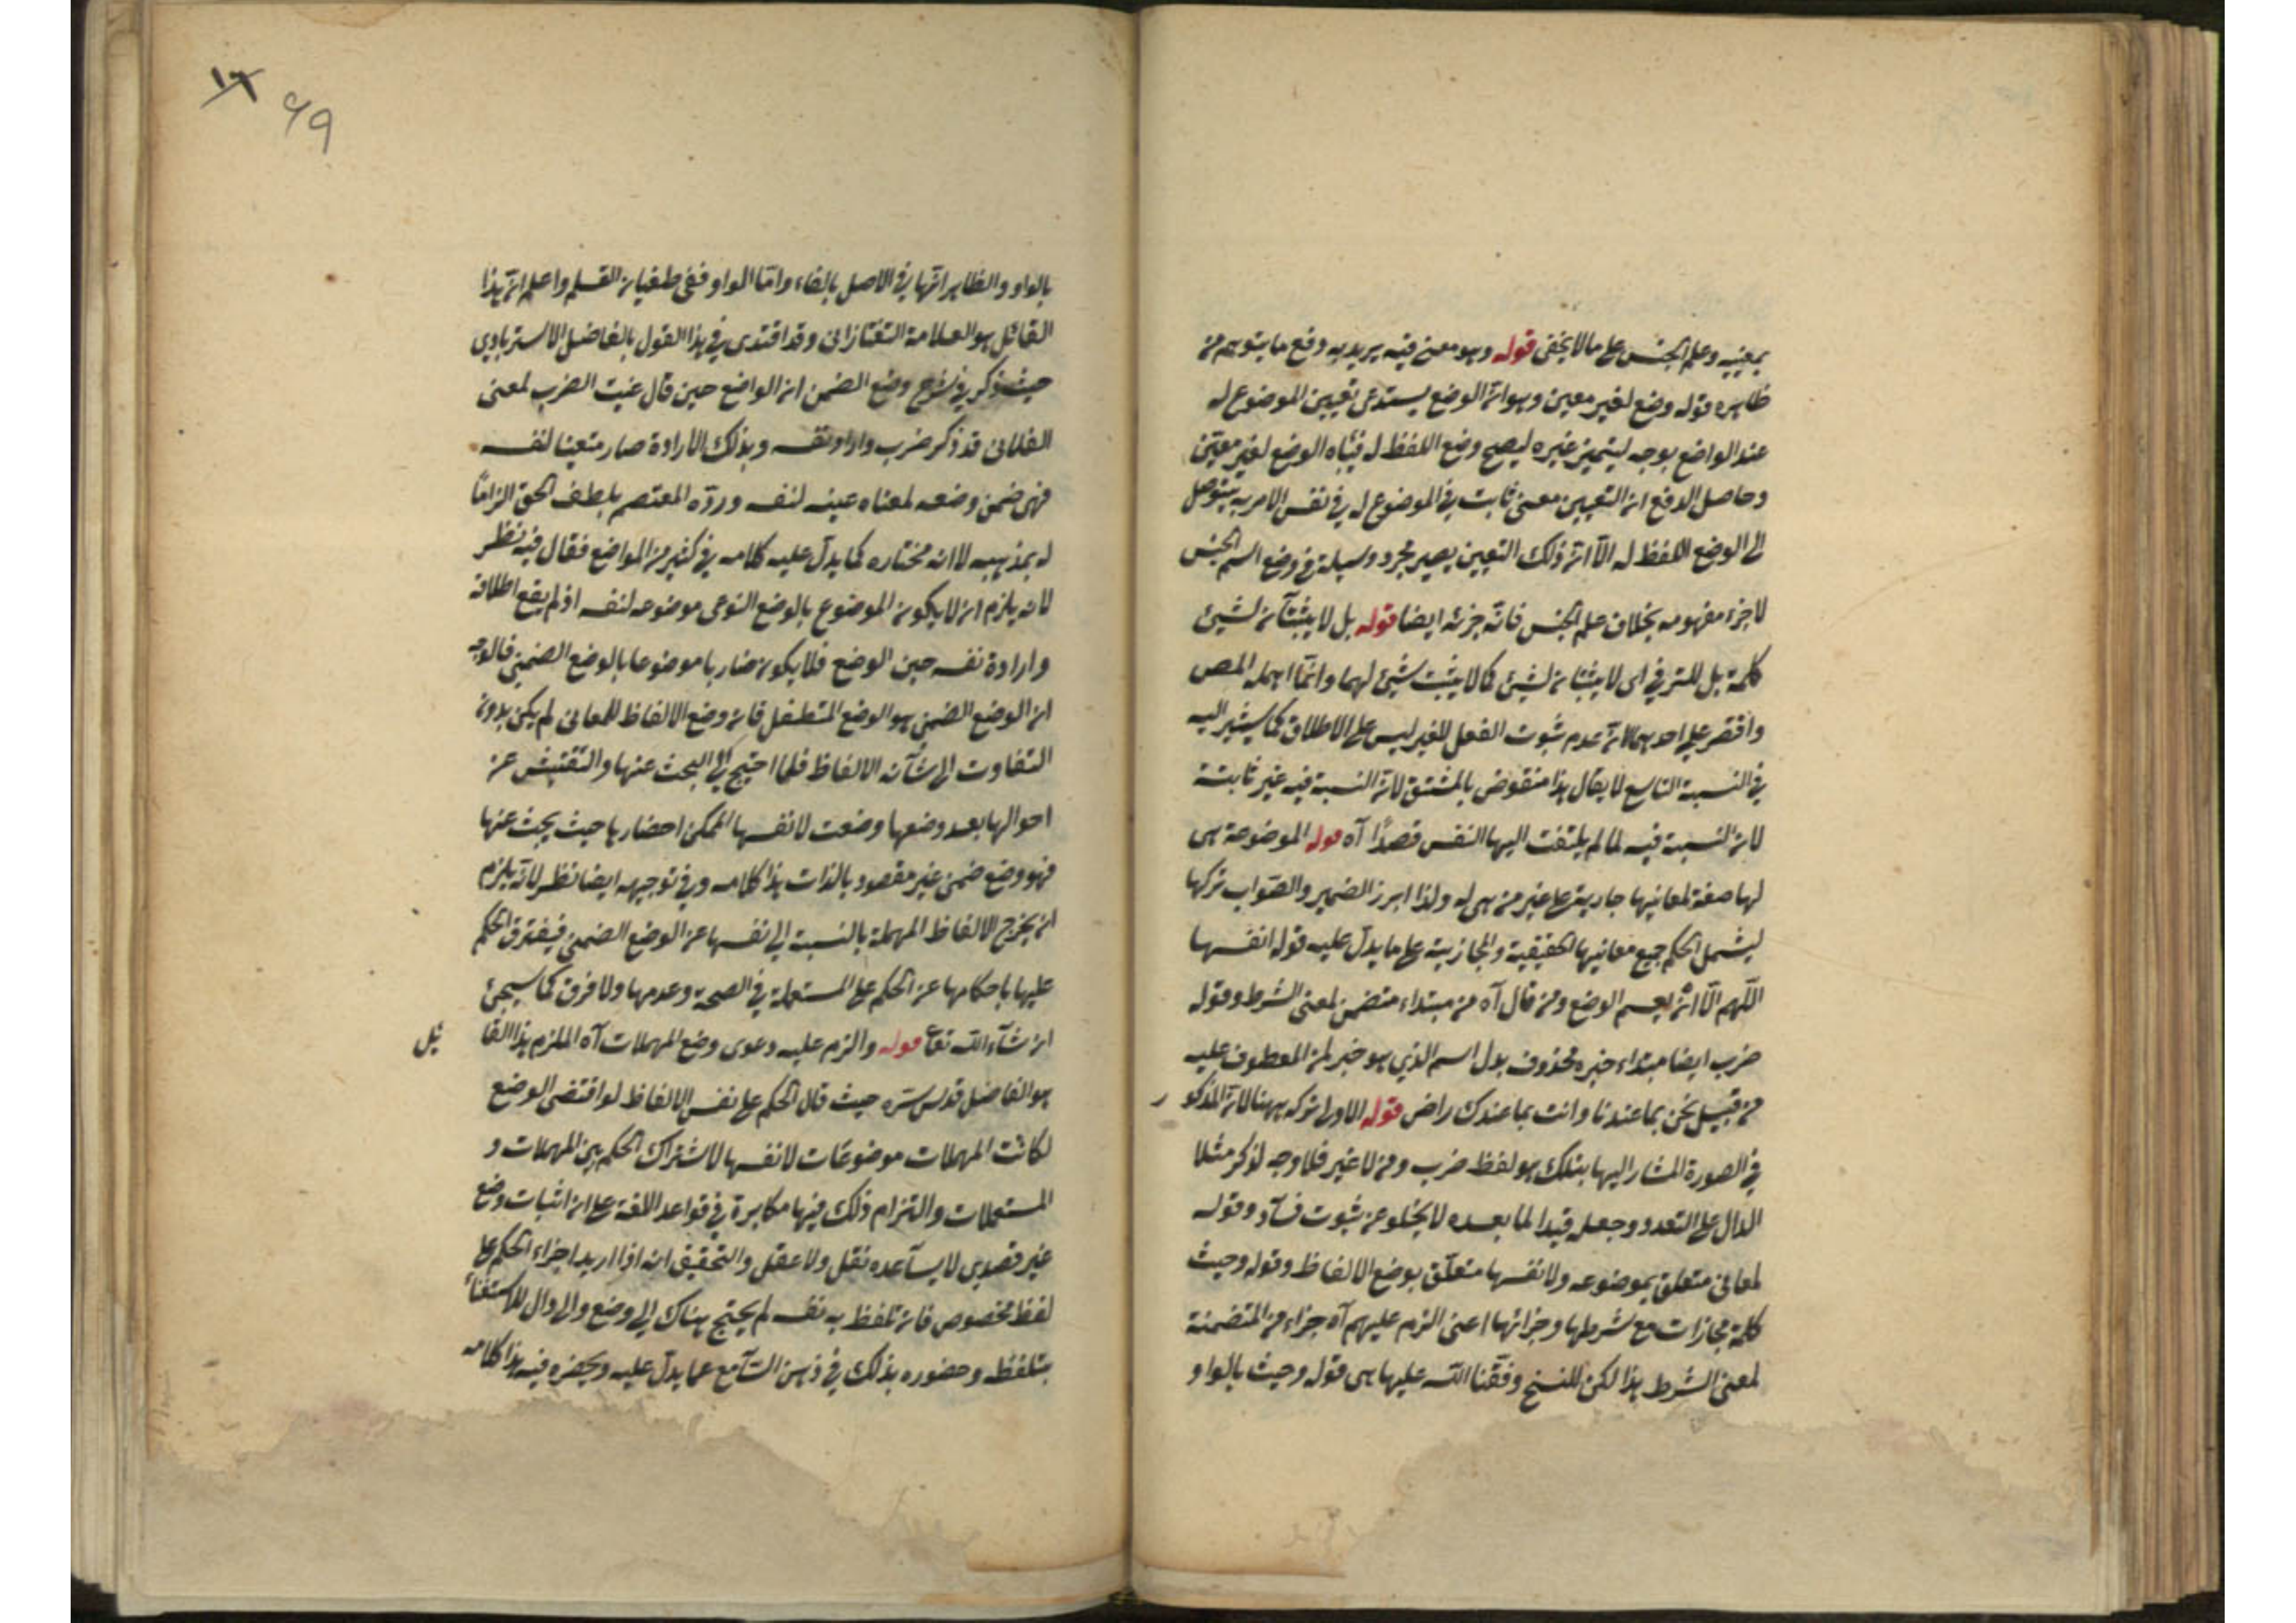 بمعينه وعلم الجنس على ما لا يخفى قوله وهو معنى فيه يريد به دفع ما يتوهم من
ظاهره قوله وضع لغير معين وهو ان الوضع يستدعى تعيين الموضوع له
عند الواضع بوجه ليتميز عن غيره ليصح وضع اللفظ له فيأباه الوضع لغير معين
وحاصل الدفع ان التعيين معنى ثابت في الموضوع له في نفس الامر به يتوصل
الى الوضع اللفظ له الّا ان ذلك التعيين يصير مجرد وسيلة في وضع اسم الجنس
لا جزء مفهومه بخلاف علم الجنس فانه جزئه ايضا قوله بل لا يثبتان لشيئ
كلمة بل للترقي اى لا يثبتان لشيئ كما لا يثبت شيئ لهما وانما اهمله المص
واقتصر على احدهما لان عدم ثبوت الفعل للغير ليس على الاطلاق كما سيشير اليه
في النسبة التاسع لا يقال هذا منقوض بالمشتق لان النسبة فيه غير ثابتة
لان النسبة فيه لما لم يلتفت اليها النفس قصدًا آه قوله الموضوعة هى
لها صفة لمعانيها جارية على غير من هى له ولذا ابرز الضمير والصواب تركها
ليشمل الحكم جميع معانيها الحقيقية والمجازية على ما يدل عليه قوله انفسها
اللّهم الّا ان يعمم الوضع ومن قال آه من مبتداء متضمن لمعنى الشرط وقوله
ضرب ايضا مبتداء خبره محذوف بدل اسم الذي هو خبر لمن المعطوف عليه
من قبيل نحن بما عندنا وانت بما عندك راض قوله الاولى تركه ههنا لان المذكو ر
في الصورة المشار اليها بتلك هو لفظ ضرب ومن لا غير فلا وجه لذكر مثلا
الدال على التعدد وجعله قيدا لما بعده لا يخلو عن ثبوت فسآد وقوله
لمعانى متعلق بموضوعه ولانفسها متعلّق بوضع الالفاظ وقوله وحيث
كلمة مجازات مع شرطها وجزائها اعنى الزم عليهم آه جزاء من المتضمنة
لمعنى الشرط هذا لكن للنسخ وفّقنا الله عليها هى قوله وحيث بالواو
٩٩
بالواو والظاهر انها في الاصل بالفاء وامّا الواو ففى طغيان القلم واعلم ان هذا
القائل هو العلامة التفتازانى وقد اقتدى في هذا القول بالفاضل الاسترابادي
حيث ذكر في شرح وضع الضمن ان الواضع حين قال عنيت الضرب لمعنى
الفلانى قد ذكر ضرب واراد نفسه وبذلك الارادة صار متعينا لنفسه
فهى ضمن وضعه لمعناه عينه لنفسه وردّه المعتصم بلطف الحق الزامًا
له بمذهبه لا انه مختاره كما يدل عليه كلامه في كثير من المواضع فقال فيه نظر
لانه يلزم ان لا يكون الموضوع بالوضع النوعى موضوعه لنفسه اذ لم يقع اطلاقه
وارادة نفسه حين الوضع فلا يكون ضاربا موضوعا بالوضع الضمنى فالوجه
ان الوضع الضمنى هو الوضع المتطفل فان وضع الالفاظ للمعانى لم يكن بدون
التفاوت الى شآن الالفاظ فلما احتيج الى البحث عنها والتفتيش عن
احوالها بعد وضعها وضعت لانفسها ليمكن احضارها حيث يبحث عنها
فهو وضع ضمنى غير مقصود بالذات هذا كلامه وفي توجيهه ايضا نظر لانه يلزم
ان يخرج الالفاظ المهملة بالنسبة الى نفسها عن الوضع الضمنى فيفترق الحكم
عليها باحكامها عن الحكم على المستعملة في الصحة وعدمها ولا فرق كما سيجئ
ان شآء الله تعا قوله والزم عليه دعوى وضع المهملات آه الملزم هذا القا ئل
هو الفاضل قدس سرّه حيث قال الحكم على نفس الالفاظ لو اقتضى الوضع
لكانت المهملات موضوعات لانفسها لاشتراك الحكم بين المهملات و
المستعملات والتزام ذلك فيها مكابرة في قواعد اللغة على ان اثبات وضع
غير قصدي لا يسآعده نقل ولا عقل والتحقيق انه اذا اريد اجراء الحكم على
لفظ مخصوص فان تلفظ به نفسه لم يحتج هناك الى وضع والى دال للاستغناء
بتلفظه وحضوره بذلك في ذهن السّآمع عما يدل عليه ويحضره فيه هذا كلامه